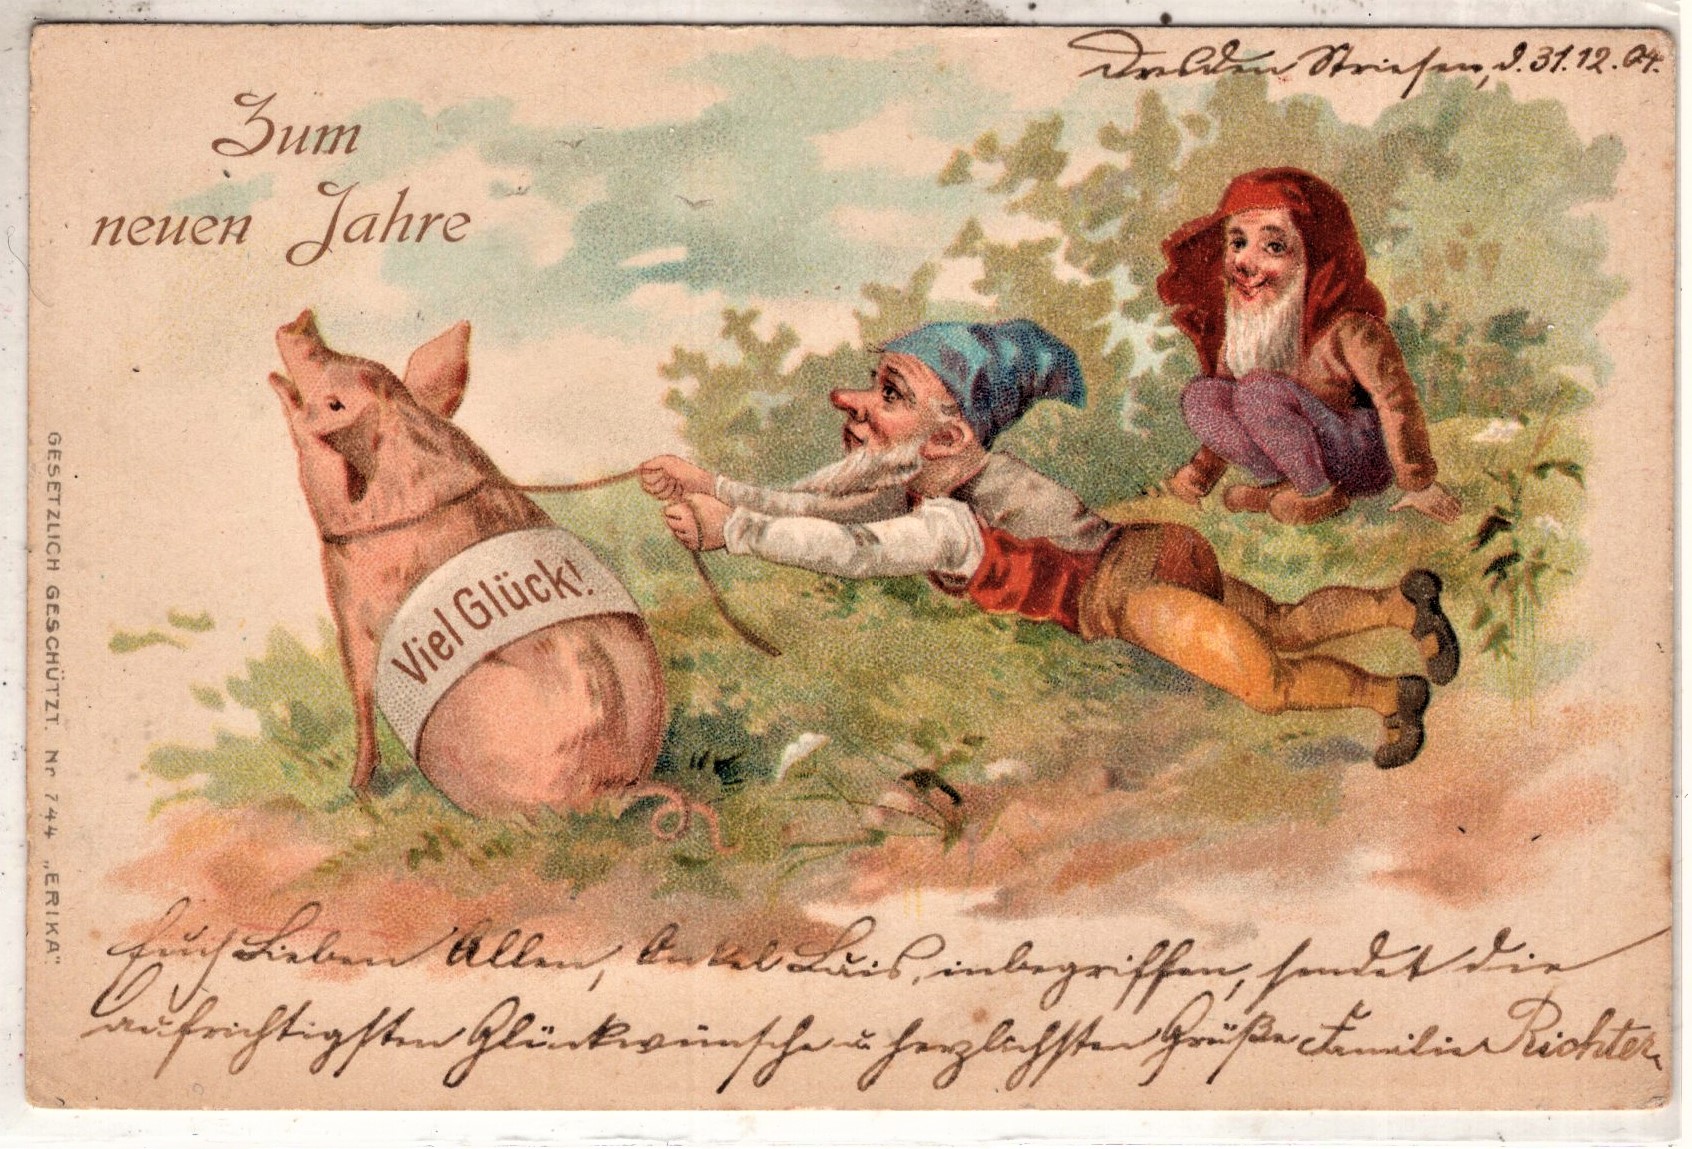 Dresden Striesen, d. 31.12.04.
Zum
neuen Jahre
Viel Glück!
GESETZLICH GESCHÜTZT. Nr 744 „ERIKA“.
Euch Lieben Allen, Onkel Luis, inbegriffen, sendet die
aufrichtigsten Glückwünsche u. herzlichsten Grüße Familie Richter.